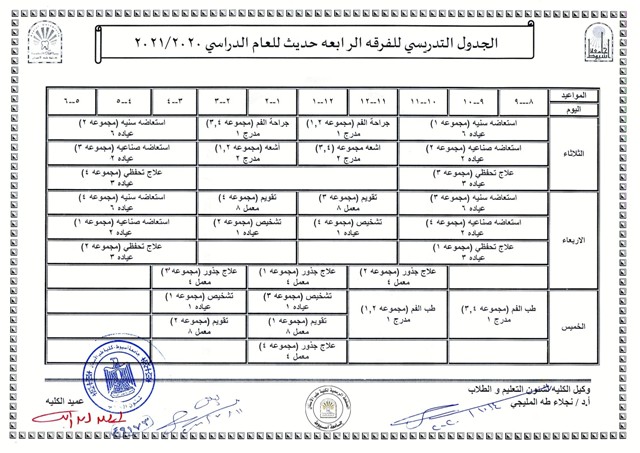 الجدول التدرسي للفرقه الرابعه حديث للعام الدراسي ٢٠٢١/٢٠٢٠
المواعيد ٨--٩ ٩--١٠ ١٠--١١ ١١--١٢ ١٢--١ ١--٢ ٢--٣ ٣--٤ ٤--٥ ٥--٦
اليوم
الثلاثاء
استعاضه سنيه (مجموعه ١) جراحة الفم (مجموعه ١,٢) جراحة الفم (مجموعه ٣,٤) استعاضه سنيه (مجموعه ٢)
عياده ٦ مدرج ١ مدرج ١ عياده ٦
استعاضه صناعيه (مجموعه ٢) اشعه مجموعه (٣,٤) اشعه (مجموعه ١,٢) استعاضه صناعيه (مجموعه ٣)
عياده ٢ مدرج ٢ مدرج ٢ عياده ٢
علاج تحفظي (مجموعه ٣) علاج تحفظي (مجموعه ٤)
عياده ٣ عياده ٣
الاربعاء
استعاضه سنيه (مجموعه ٣) تقويم (مجموعه ٣) تقويم (مجموعه ٤) استعاضه سنيه (مجموعه ٤)
عياده ٦ معمل ٨ معمل ٨ عياده ٦
استعاضه صناعيه (مجموعه ٤) تشخيص (مجموعه ٤) تشخيص (مجموعه ٢) استعاضه صناعيه (مجموعه ١)
عياده ٢ عياده ١ عياده ١ عياده ٢
علاج تحفظي (مجموعه ١) علاج تحفظي (مجموعه ٢)
عياده ٣ عياده ٣
الخميس
علاج جذور (مجموعه ٢) علاج جذور (مجموعه ١) علاج جذور (مجموعه ٣)
معمل ٤ معمل ٤ معمل ٤
طب الفم (مجموعه ٣,٤) طب الفم (مجموعه ١,٢) تشخيص (مجموعه ٣) تشخيص (مجموعه ١)
مدرج ١ مدرج ١ عياده ١ عياده ١
تقويم (مجموعه ١) تقويم (مجموعه ٢)
معمل ٨ معمل ٨
علاج جذور (مجموعه ٤)
معمل ٤
وكيل الكليه لشئون التعليم و الطلاب
أ.د / نجلاء طه المليجي
عميد الكليه